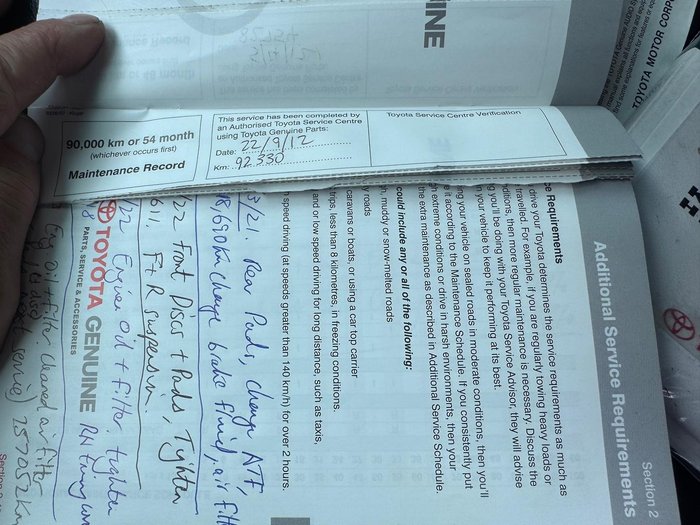 90,000 km or 54 month
(whichever occurs first)
Maintenance Record
This service has been completed by
an Authorised Toyota Service Centre
using Toyota Genuine Parts:
Date: 22/9/12
Km: 92330
Toyota Service Centre Verification
INE
TOYOTA MOTOR CORP
Section 2
Additional Service Requirements
ce Requirements
drive your Toyota determines the service requirements as much as
travelled. For example, if you are regularly towing heavy loads or
ditions, then more regular maintenance is necessary. Discuss the
you'll be doing with your Toyota Service Advisor, they will advise
n your vehicle to keep it performing at its best.
ng your vehicle on sealed roads in moderate conditions, then you'll
e it according to the Maintenance Schedule. If you consistently put
h extreme conditions or drive in harsh environments, then your
the extra maintenance as described in Additional Service Schedule.
could include any or all of the following:
h, muddy or snow-melted roads
y roads
caravans or boats, or using a car top carrier
trips, less than 8 kilometres, in freezing conditions.
and or low speed driving for long distance, such as taxis,
h speed driving (at speeds greater than 140 km/h) for over 2 hours.
3/21. Rear Pads, change ATF,
8,690Km change brake fluid, air filt
/22 Front Discs + Pads, Tighten
611. F+R suspension.
/22 Engine Oil + filter, tighten
TOYOTA GENUINE
PARTS, SERVICE & ACCESSORIES
Eng oil + filter. Cleaned air filter
service) 257052km